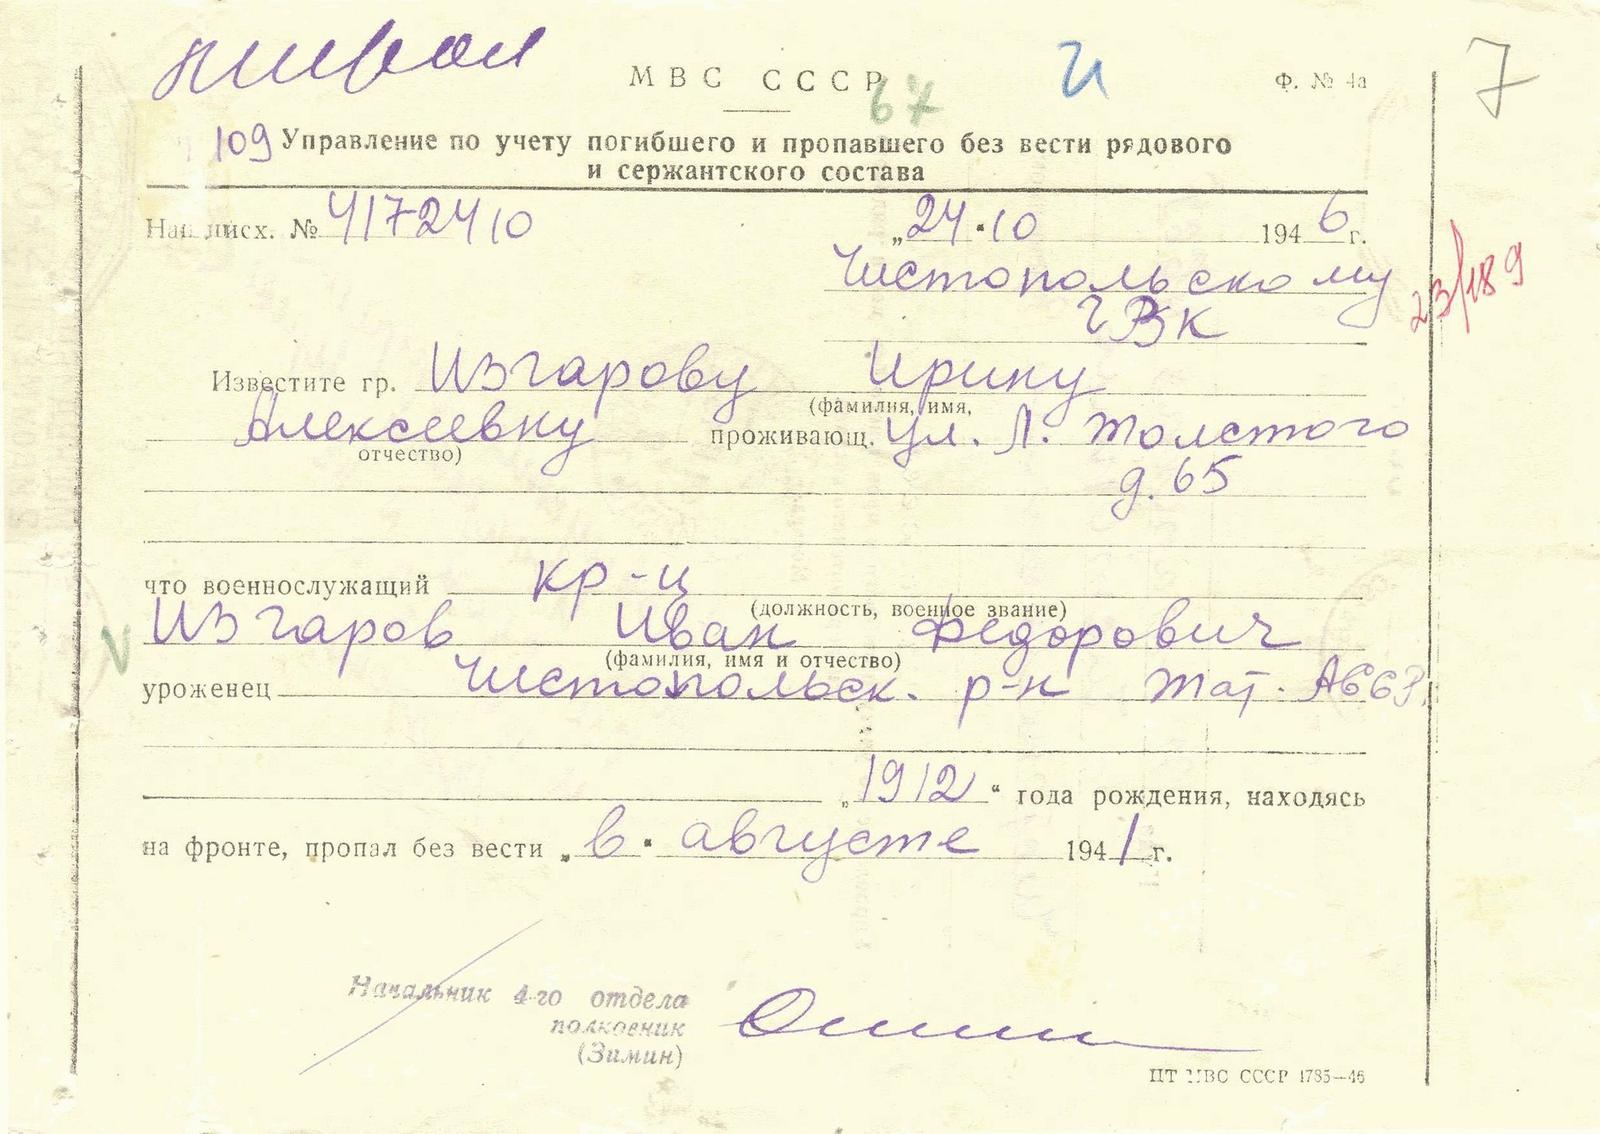 МВС СССР
67
И
Ф. № 4а
7
109 Управление по учету погибшего и пропавшего без вести рядового
и сержантского состава
На исх. № 4172410 „24“ 10 1946 г.
Чистопольскому
ГВК
23/189
Известите гр. Изгарову Ирину
(фамилия, имя,
Алексеевну проживающ. ул. Л. Толстого
отчество)
д. 65
что военнослужащий кр-ц
(должность, военное звание)
Изгаров Иван Федорович
(фамилия, имя и отчество)
уроженец Чистопольск. р-н Тат. АССР.
„1912“ года рождения, находясь
на фронте, пропал без вести „в“ августе 1941 г.
Начальник 4-го отдела
полковник
(Зимин)
ЦТ МВС СССР 1785—46